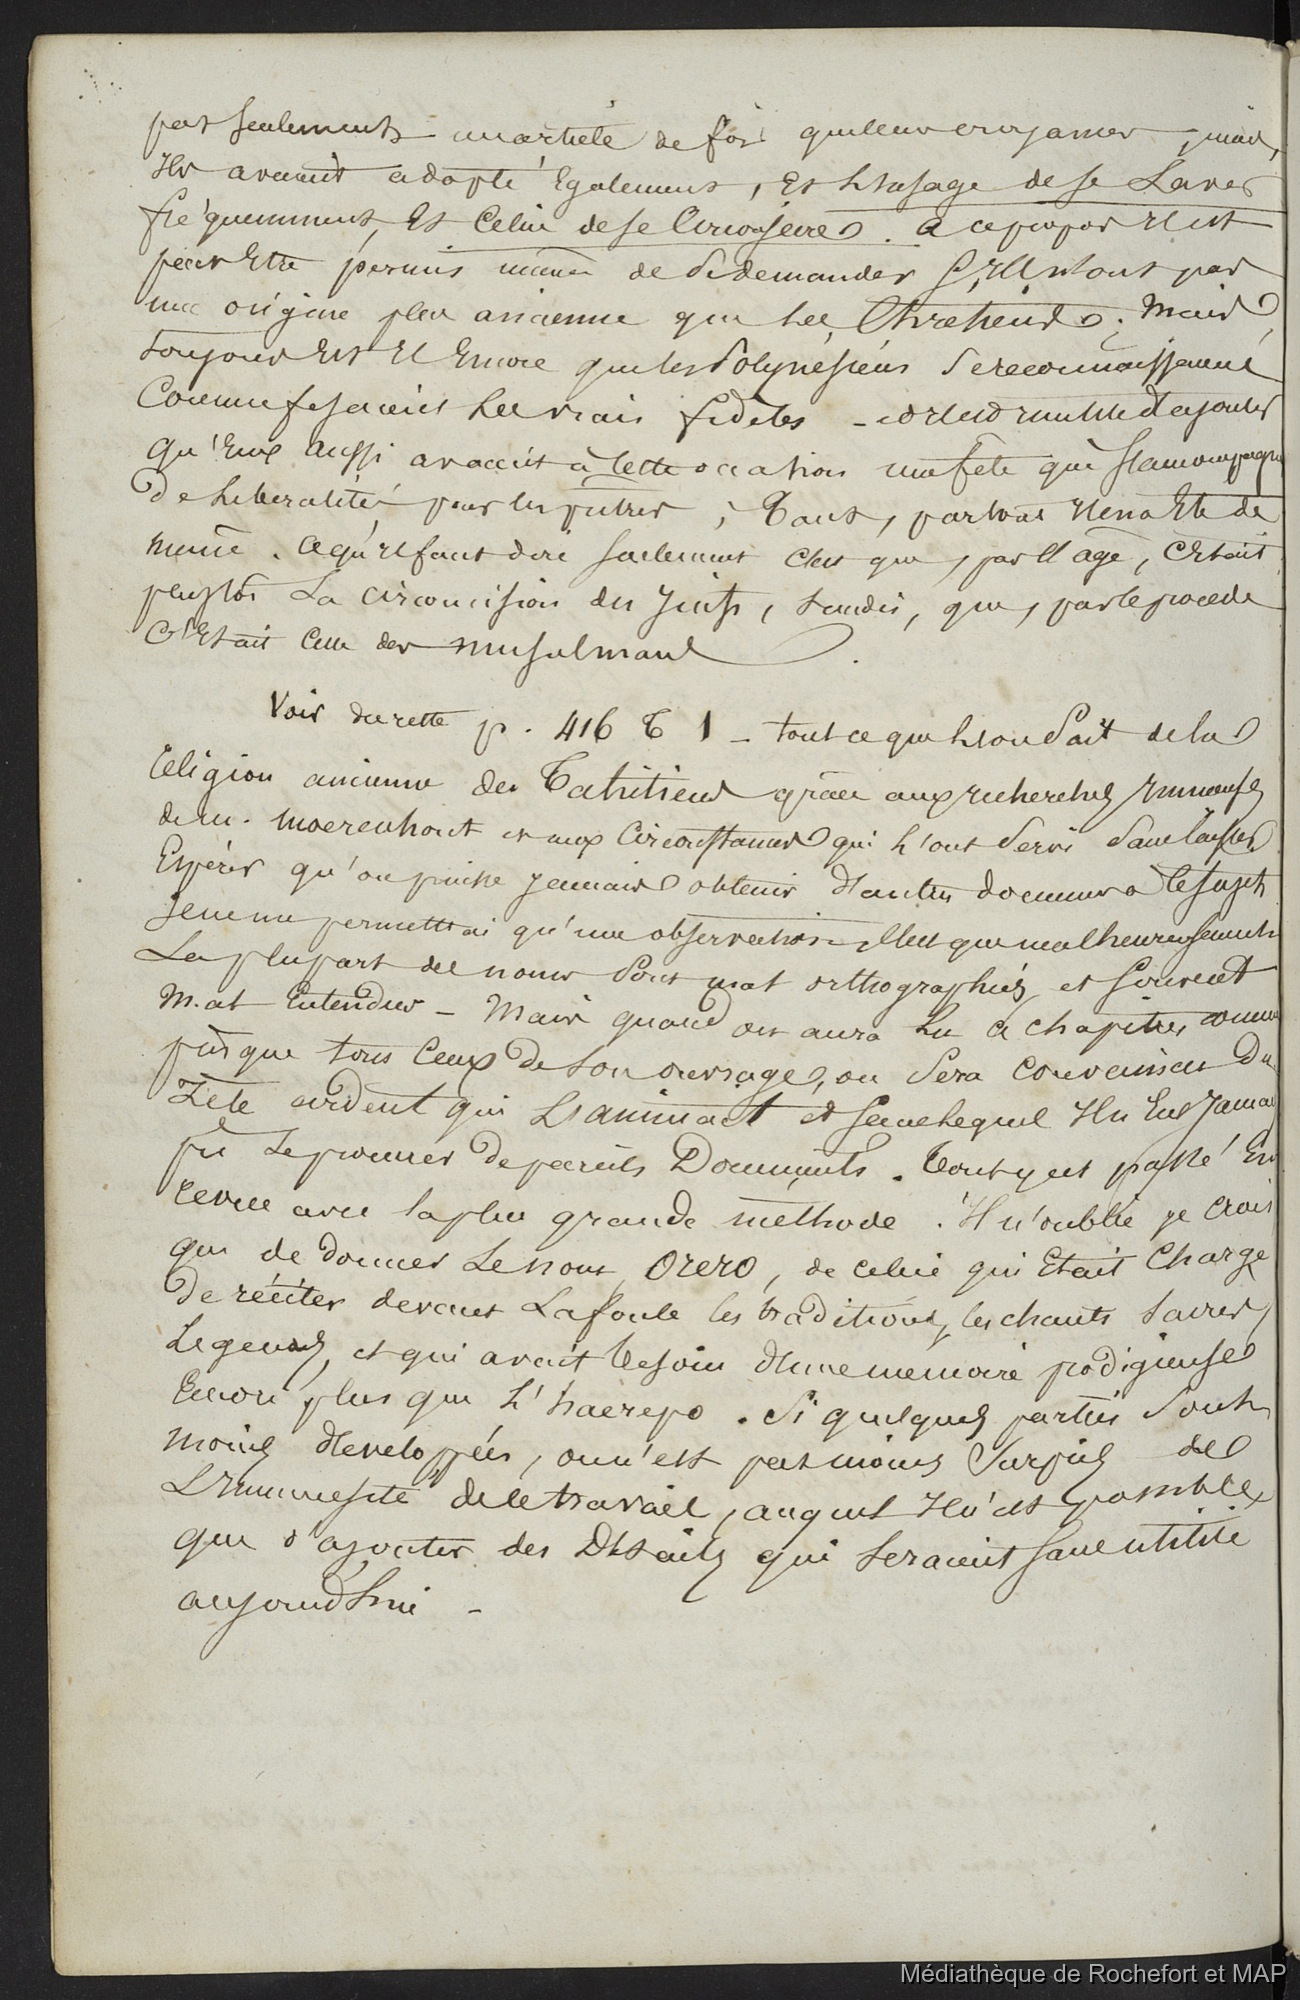 pas seulement un article de foi qu'ils avaient, mais,
Ils avaient adopté Egalement, Et L'usage de se Laver
fréquemment, Et Celui de se Circonscire. a ce propos Il est
peut Etre permis même de se demander s'Ils n'ont pas
une origine plus ancienne que les Chretiens. Mais
toujours Est Il Encore que les Polynésiens se reconnaissaient
Comme fesaient les vrais fideles - et Il est inutile d'ajouter
qu'Eux aussi avaient à cette occasion une fête qui s'accompagn
de Liberalités pour les prêtres, Tant, partout Il en a Eté de
même. Ce qu'il faut dire seulement c'est que, par l'age, C'Etait
plustôt La circoncision des Juifs, tandis, que, par le procede
C'Etait Celle des musulmans.
Voir du reste p. 416 T 1 - tout ce que l'on sait de la
Religion ancienne des Tahitiens grâce aux recherches Immenses
de M. Moerenhout et aux Circonstances qui l'ont Servi Sans laisser
Espérer qu'on puisse Jamais obtenir d'autres documents a ce sujet
Je ne me permettrai qu'une observation. C'est que malheureusement
La plupart des noms Sont mal orthographiés et souvent
mal Entendus - Mais quand on aura Lu ce chapitre comme
presque tous Ceux de son ouvrage, on Sera convaincu Du
Zèle ardent qui L'animait et sans lequel Il n'Eut Jamai
pû se procurer de pareils Documents. Tout y est passé En
revue avec la plus grande méthode. Il n'oublie je crois
que de donner Le nom, Orero, de celui qui Etait Chargé
De réciter devant La foule les traditions, les chants sacrés,
Legendes, et qui avait besoin d'une memoire prodigieuse
Encore plus que l'haerepo. Si quelques parties Sont
moins developpées, on n'est pas moins Surpris de
L'Immensité de ce travail, auquel Il n'est possible
que d'ajouter des Détails qui seraient sans utilité
aujourd'hui -
Médiathèque de Rochefort et MAP